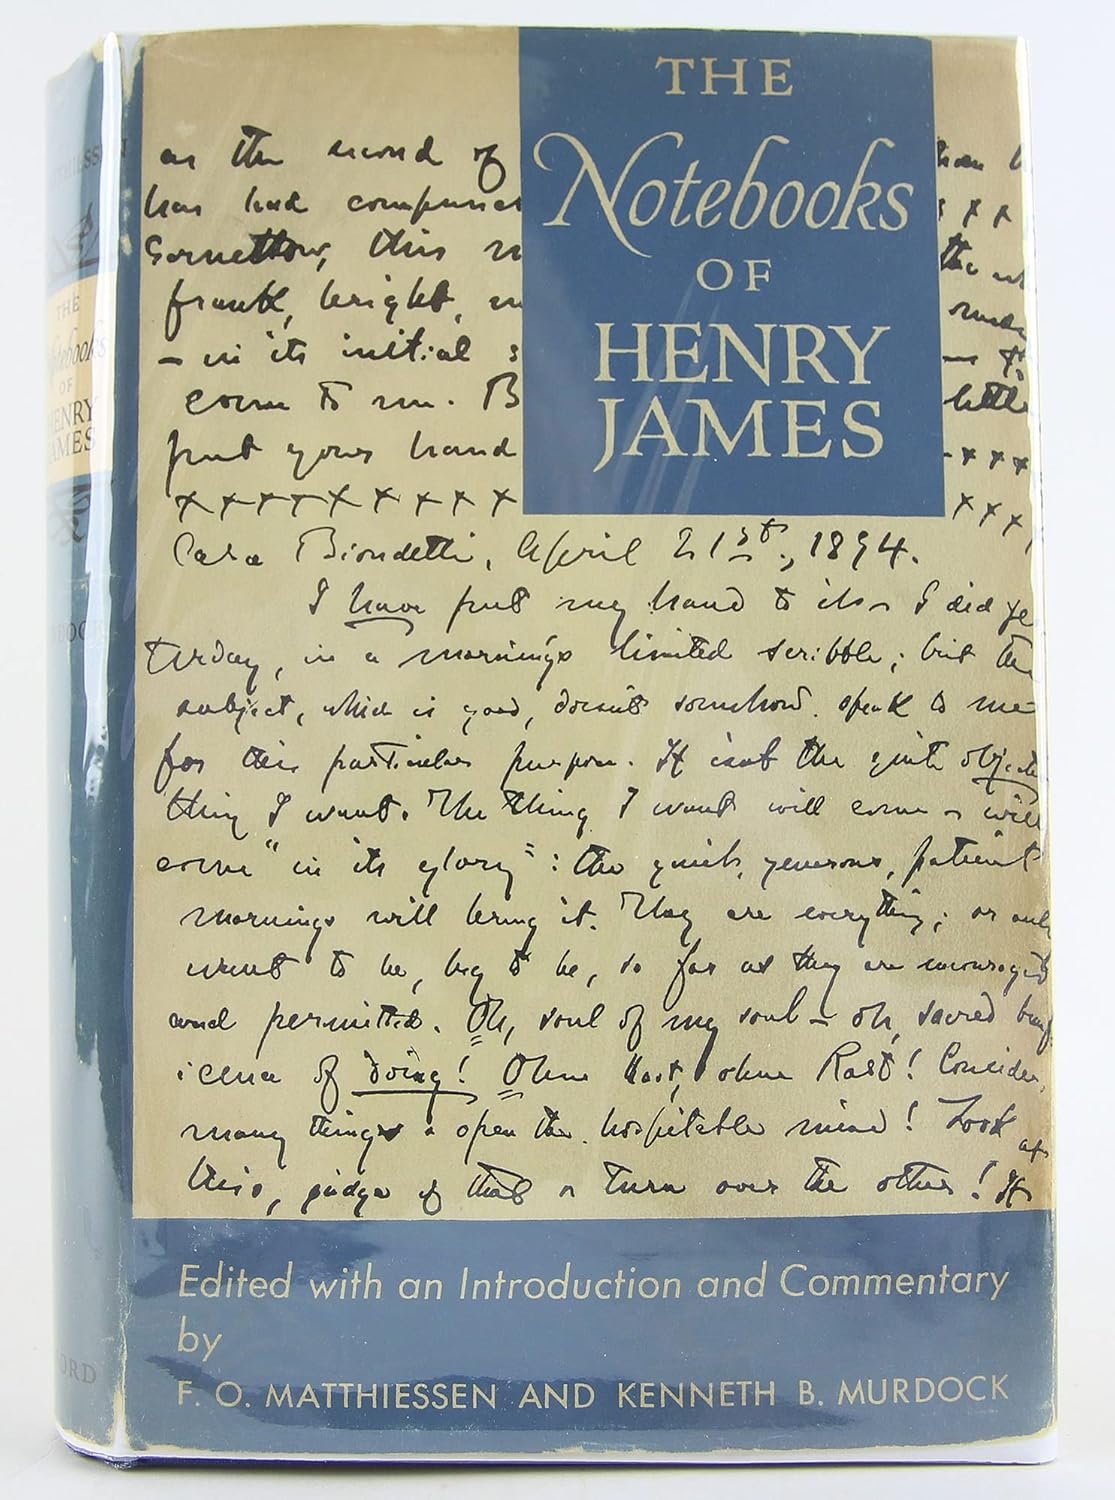 THE
Notebooks
OF
HENRY
JAMES
as the second of
has had
this
frank, bright,
- in its initial
come to me. B
put your hand
x x x x x x x x x
x x
the
little
- x x x
x x x
Casa Biondetti, April 21st, 1894.
I have put my hand to it - I did yes
terday, in a morning's limited scribble; but the
subject, which is good, doesn't somehow speak to me
for this particular purpose. It isn't the quite objective
thing I want. The thing I want will come - will
come "in its glory": the quiet, generous, patient
mornings will bring it. They are everything; or only
want to be, beg to be, so far as they are encouraged
and permitted. Oh, soul of my soul - oh, sacred benef
icence of doing! Ohne Hast, ohne Rast! Consider
many things & open the hospitable mind! Look at
this, judge of that & turn over the other! It
Edited with an Introduction and Commentary
by
F. O. MATTHIESSEN AND KENNETH B. MURDOCK
THE
Notebooks
OF
HENRY
JAMES
ORD